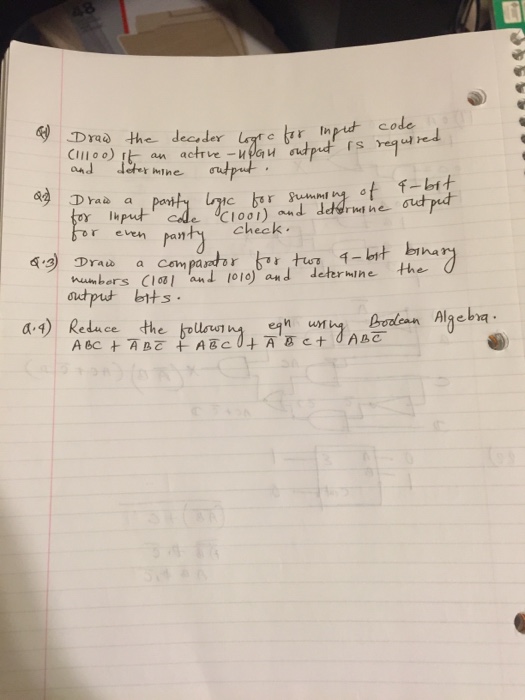 Q1) Draw the decoder logic for input code
(11100) if an active-HIGH output is required
and determine output.
Q.2) Draw a parity logic for summing of 4-bit
for input code (1001) and determine output
for even parity check.
Q.3) Draw a comparator for two 4-bit binary
numbers (1001 and 1010) and determine the
output bits.
Q.4) Reduce the following eqn using Boolean Algebra.
ABC + A̅ B C̅ + A B̅ C + A̅ B̅ C + A B C̅